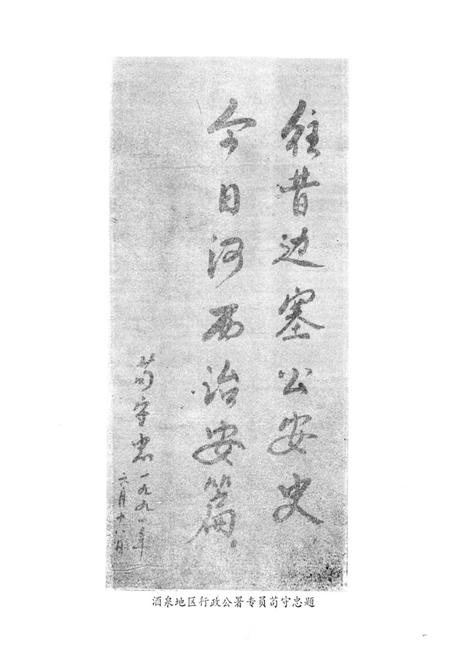 往昔边塞公安史
今日河西治安篇
苟守忠
一九九一年
六月十八日
酒泉地区行政公署专员苟守忠题